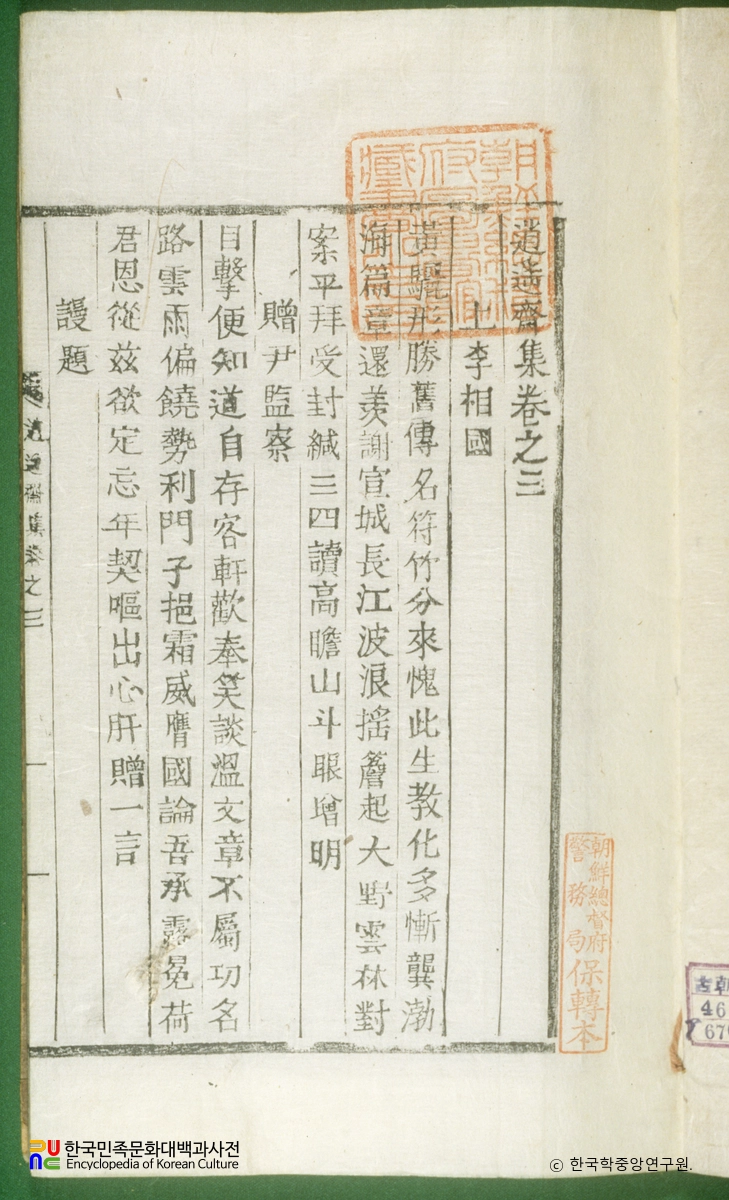 逍遥齋集卷之三
上李相國
黃驪形勝舊傳名符竹分來愧此生教化多慚龔渤
海篇章還羡謝宣城長江波浪搖簷起大野雲林對
案平拜受封緘三四讀高瞻山斗眼增明
贈尹監察
目擊便知道自存客軒歡奉笑談溫文章不屬功名
路雲雨偏饒勢利門子挹霜威膺國論吾承露冕荷
君恩從茲欲定忘年契嘔出心肝贈一言
謾題
集卷之三
朝鮮總督府
警務局
保轉本
古朝
46
670
한국민족문화대백과사전
Encyclopedia of Korean Culture
ⓒ 한국학중앙연구원.